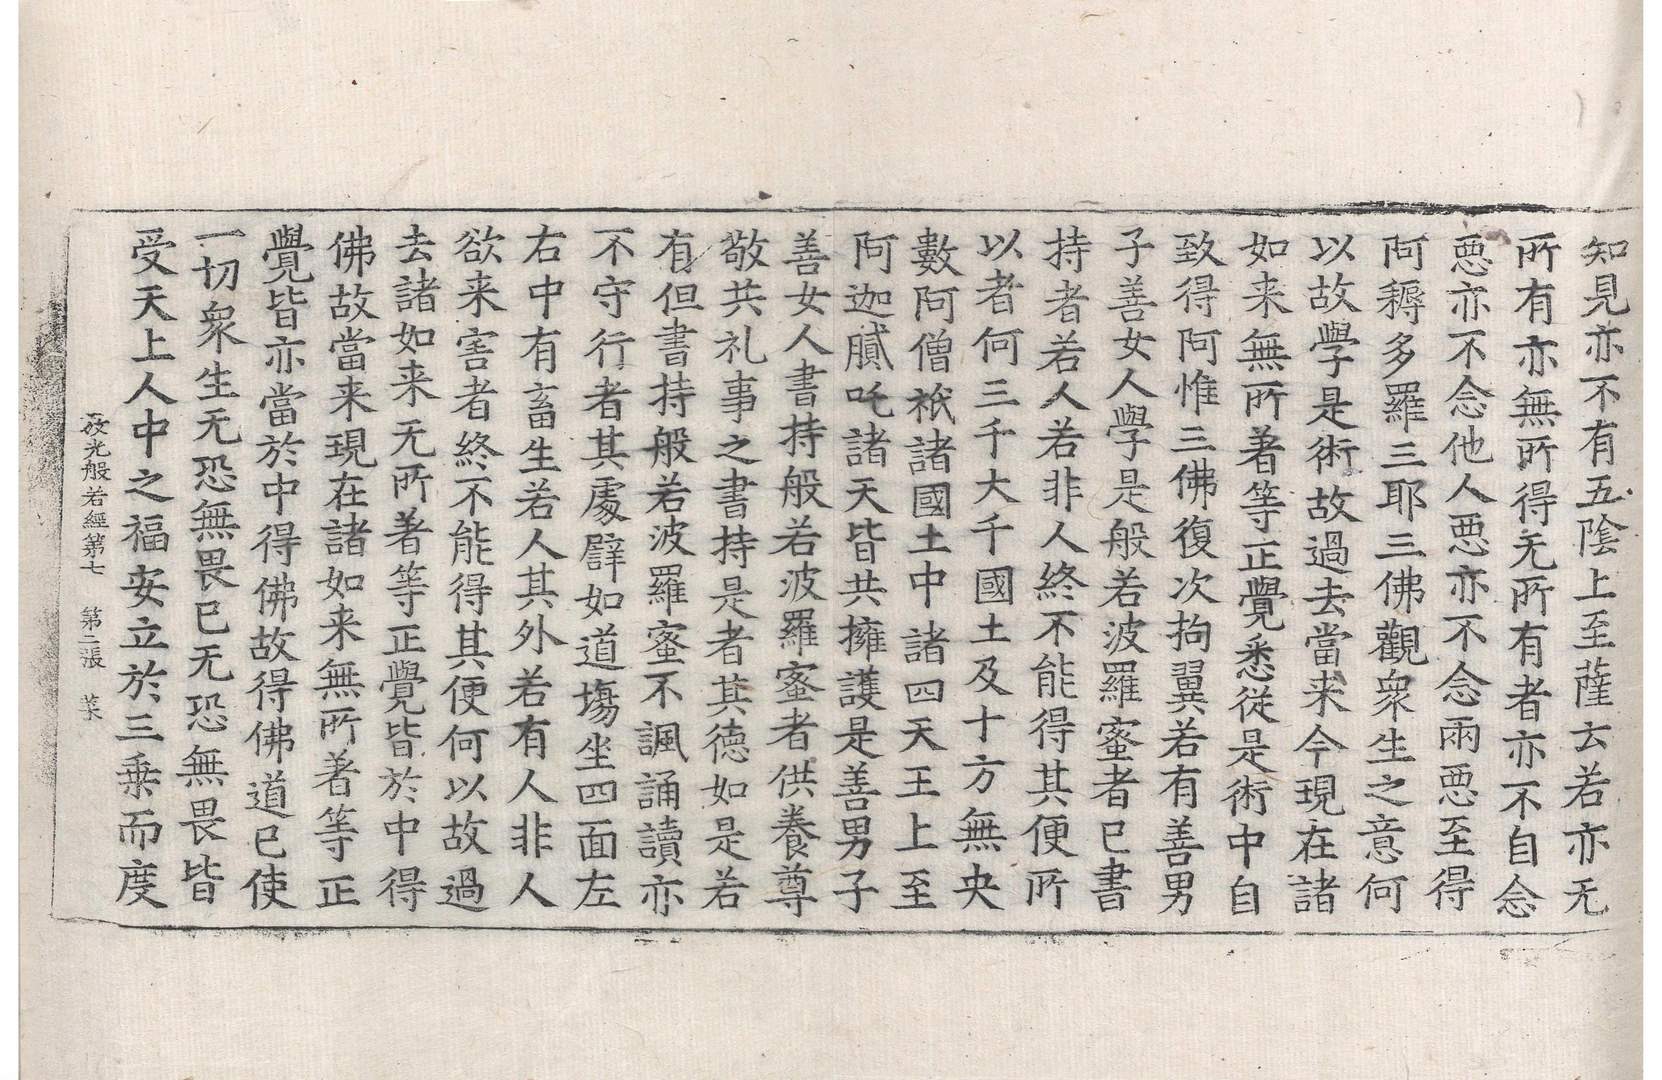 知見亦不有五陰上至薩云若亦无
所有亦無所得无所有者亦不自念
惡亦不念他人惡亦不念兩惡至得
阿耨多羅三耶三佛觀衆生之意何
以故學是術故過去當来今現在諸
如来無所著等正覺悉從是術中自
致得阿惟三佛復次拘翼若有善男
子善女人學是般若波羅蜜者已書
持者若人若非人終不能得其便所
以者何三千大千國土及十方無央
數阿僧祇諸國土中諸四天王上至
阿迦膩吒諸天皆共擁護是善男子
善女人書持般若波羅蜜者供養尊
敬共礼事之書持是者其德如是若
有但書持般若波羅蜜不諷誦讀亦
不守行者其處譬如道場坐四面左
右中有畜生若人其外若有人非人
欲来害者終不能得其便何以故過
去諸如来无所著等正覺皆於中得
佛故當来現在諸如来無所著等正
覺皆亦當於中得佛故得佛道已使
一切衆生无恐無畏已无恐無畏皆
受天上人中之福安立於三乗而度
放光般若經第七 第二張 菜